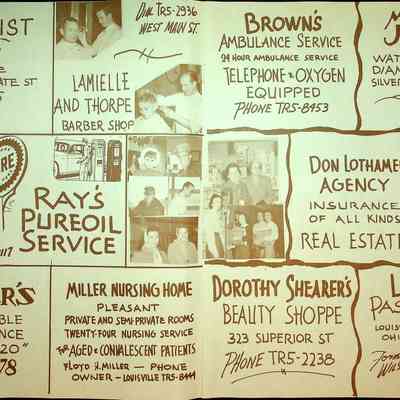 IST
ATE ST
DIAL TR5-2936
WEST MAIN ST.
LAMIELLE
AND THORPE
BARBER SHOP
BROWN'S
AMBULANCE SERVICE
24 HOUR AMBULANCE SERVICE
TELEPHONE & OXYGEN
EQUIPPED
PHONE TR5-8453
WAT
DIAM
SILVER
RE
RAY'S
PUREOIL
SERVICE
DON LOTHAME
AGENCY
INSURANCE
OF ALL KINDS
REAL ESTATE
R'S
BLE
NCE
20"
78
MILLER NURSING HOME
PLEASANT
PRIVATE AND SEMI-PRIVATE ROOMS
TWENTY-FOUR NURSING SERVICE
FOR AGED & CONVALESCENT PATIENTS
FLOYD H. MILLER - PHONE
OWNER - LOUISVILLE TR5-8444
DOROTHY SHEARER'S
BEAUTY SHOPPE
323 SUPERIOR ST
PHONE TR5-2238
L
PAS
LOUIS
OHI